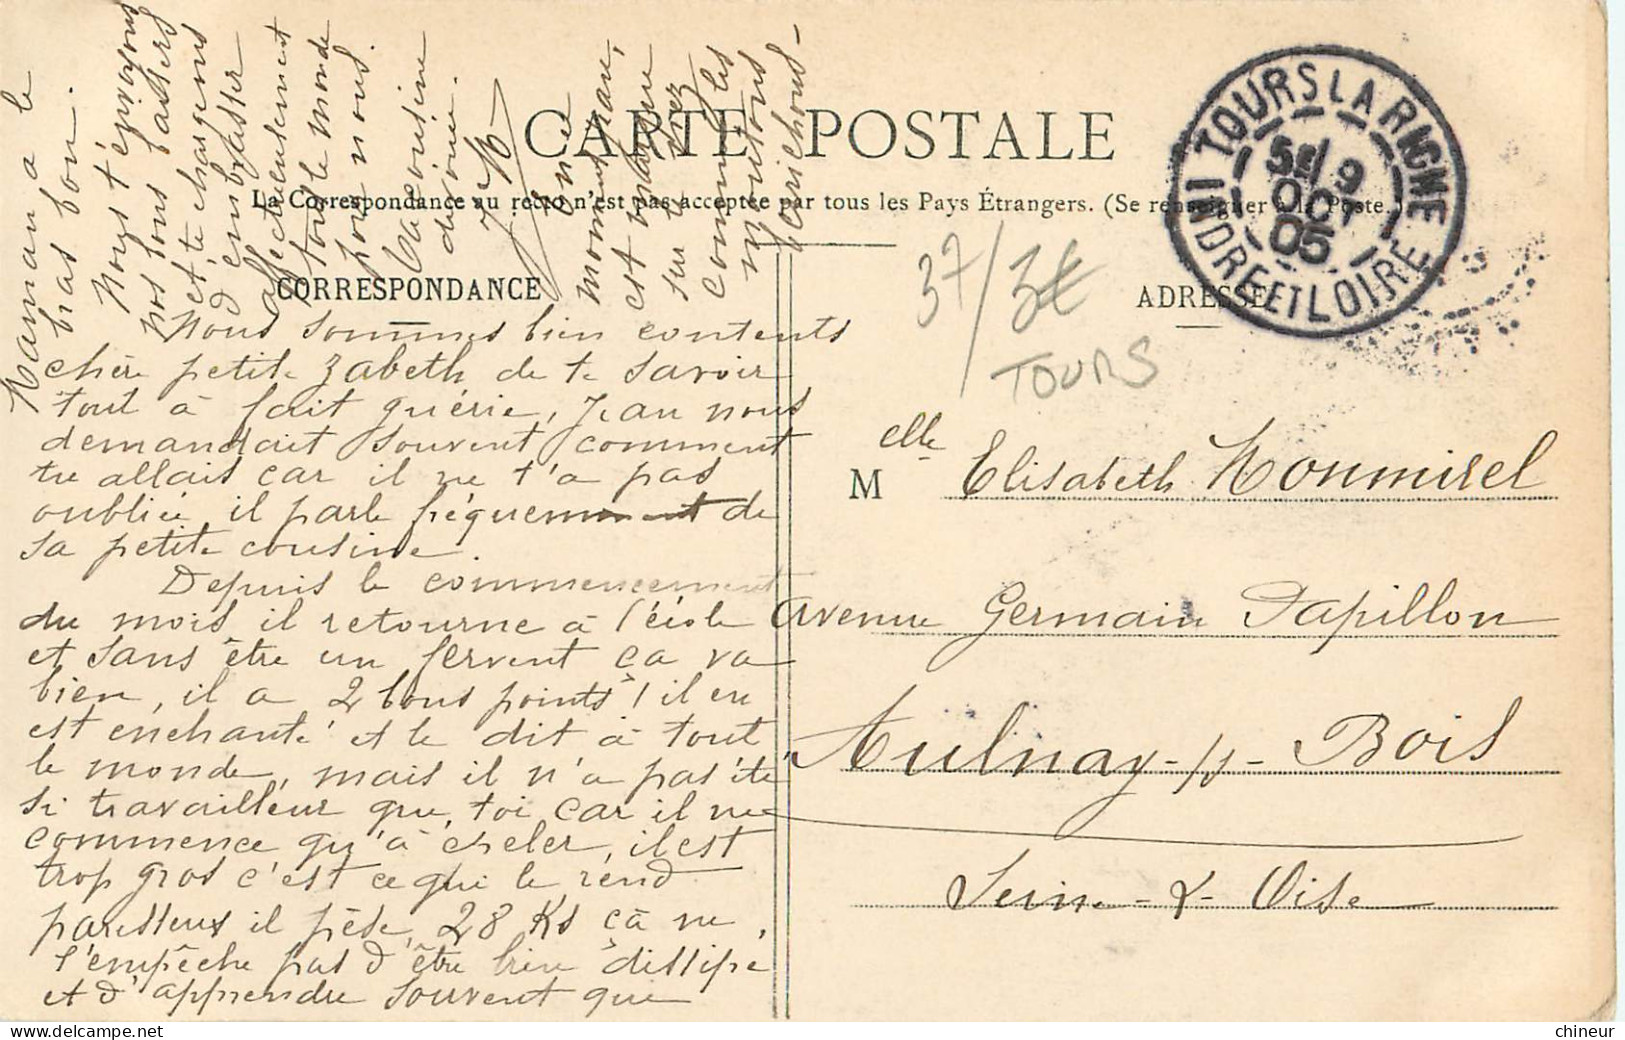 CARTE POSTALE
La Correspondance au recto n'est pas acceptée par tous les Pays Étrangers. (Se renseigner à la Poste.)
CORRESPONDANCE
ADRESSE
TOURS LA RICHE
9
OCT
05
INDRE ET LOIRE
37/3€
TOURS
Nous sommes bien contents
chère petite Zabeth de te savoir
tout à fait guérie, Jean nous
demandait souvent comment
tu allais car il ne t'a pas
oubliée il parle fréquemment de
sa petite cousine.
Depuis le commencement
du mois il retourne à l'école
et sans être un fervent ça va
bien, il a 2 bons points! il en
est enchanté et le dit à tout
le monde, mais il n'a pas été
si travailleur que toi car il ne
commence qu'à épeler, il est
trop gros c'est ce qui le rend
paresseux il pèse 28 Ks çà ne
l'empêche pas d'être bien dissipé
et d'apprendre souvent que
Maman a le
bras bon.
Nous t'envoyons
nos bons baisers
et te chargeons
d'embrasser
affectueusement
tout le monde
pour nous.
Ta cousine
dévouée.
mon
est
sur le nez
comme les
moutons
Melle Elisabeth Monmirel
avenue Germain Papillon
Aulnay-s/s-Bois
Seine-&-Oise
chineur